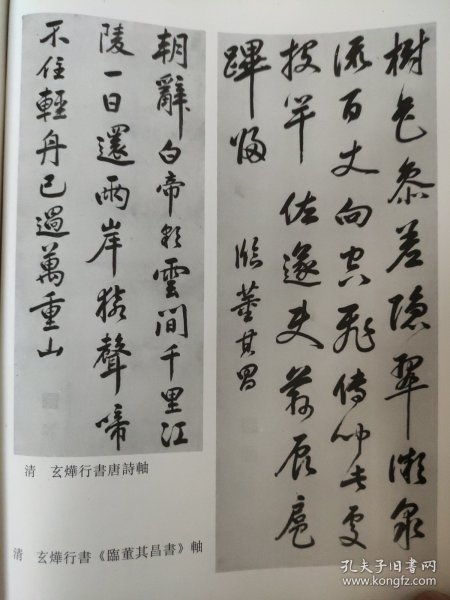 樹色參差隱翠微泉
流百丈向空飛傳聞此處
投竿住遂使茲辰扈
蹕歸
臨董其昌
朝辭白帝彩雲間千里江
陵一日還兩岸猿聲啼
不住輕舟已過萬重山
清 玄燁行書唐詩軸
清 玄燁行書《臨董其昌書》軸
孔夫子旧书网
www.kongfz.com